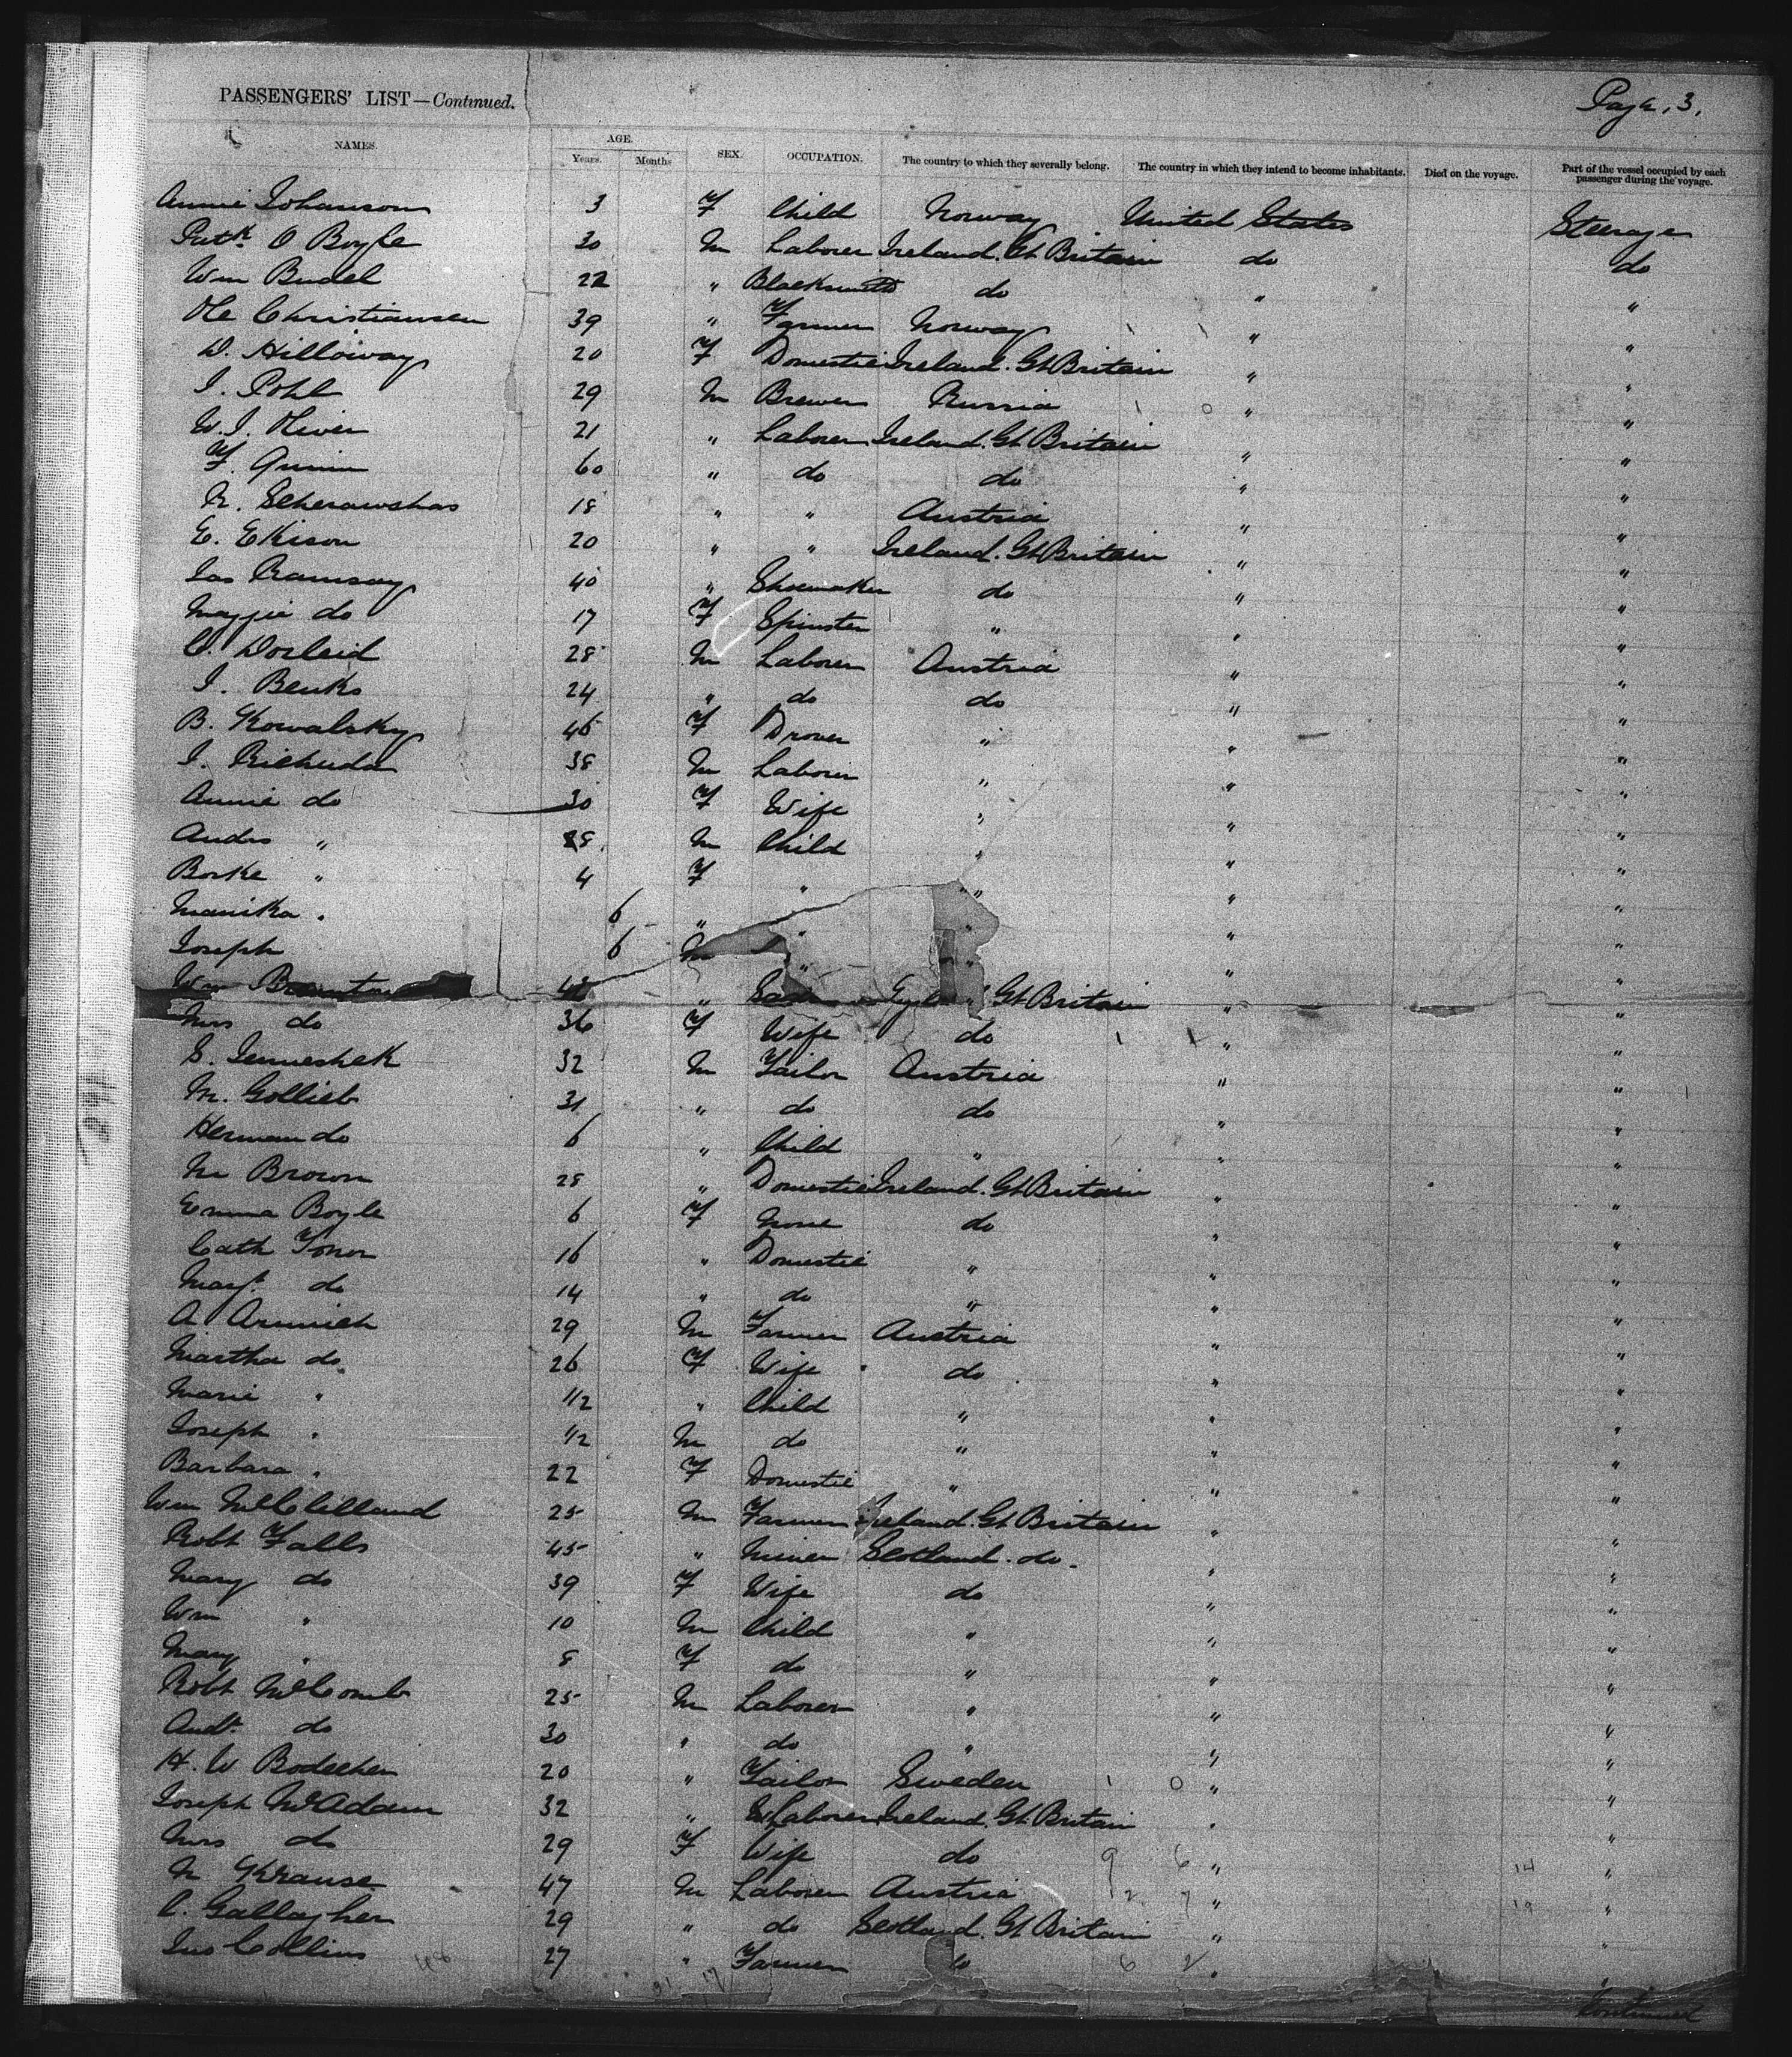 PASSENGERS' LIST—Continued.
Page. 3.
NAMES. AGE. Years. Months SEX. OCCUPATION. The country to which they severally belong. The country in which they intend to become inhabitants. Died on the voyage. Part of the vessel occupied by each passenger during the voyage.
Annie Johanson 3 F Child Norway United States Steerage
Patk O Boyle 30 M Laborer Ireland. Gt Britain do do
Wm Budel 22 " Blacksmith do " "
Ole Christiansen 39 " Farmer Norway " "
D. Hilloway 20 F Domestic Ireland. Gt Britain " "
I. Pohl 29 M Brewer Russia " "
W. J. Oliver 21 " Laborer Ireland. Gt Britain " "
F. Quinn 60 " do do " "
N. Scherawshas 18 " " Austria " "
E. Ekison 20 " " Ireland. Gt Britain " "
Jas Ramsay 40 " Shoemaker do " "
Maggie do 17 F Spinster " " "
C. Dorleid 28 M Laborer Austria " "
I. Benks 24 " do do " "
B. Kowalsky 46 F Drover " " "
I. Richuda 38 M Laborer " " "
Annie do 30 F Wife " " "
Andrs " M Child " " "
Borke " 4 F " " " "
Marika " 6 " " " " "
Joseph 6 M " " " "
Wm " Gt Britain " "
Mrs do 36 F Wife do " "
S. Jenneshek 32 M Tailor Austria " "
M. Gollieb 31 " do do " "
Herman do 6 " Child " " "
M Brown 28 " Domestic Ireland. Gt Britain " "
Emma Boyle 6 F None do " "
Cath Toner 16 " Domestic " " "
Margt do 14 " do " " "
A Arminch 29 M Farmer Austria " "
Martha do 26 F Wife do " "
Marie " 1/2 " Child " " "
Joseph " 1/2 M do " " "
Barbara " 22 F Domestic " " "
Wm McClelland 25 M Farmer Ireland. Gt Britain " "
Robt Falls 45 " Miner Scotland. do. " "
Mary do 39 F Wife do " "
Wm " 10 M Child " " "
Mary " 8 F do " " "
Robt McComb 25 M Laborer " " "
Andw do 30 " do " " "
H. W Bodecker 20 " Tailor Sweden " "
Joseph McAdam 32 " Laborer Ireland. Gt Britain " "
Mrs do 29 F Wife do " "
N Krause 47 M Laborer Austria " "
C. Gallagher 29 " do Scotland. Gt Britain " "
Jno Collins 27 " Farmer do " "
Continued